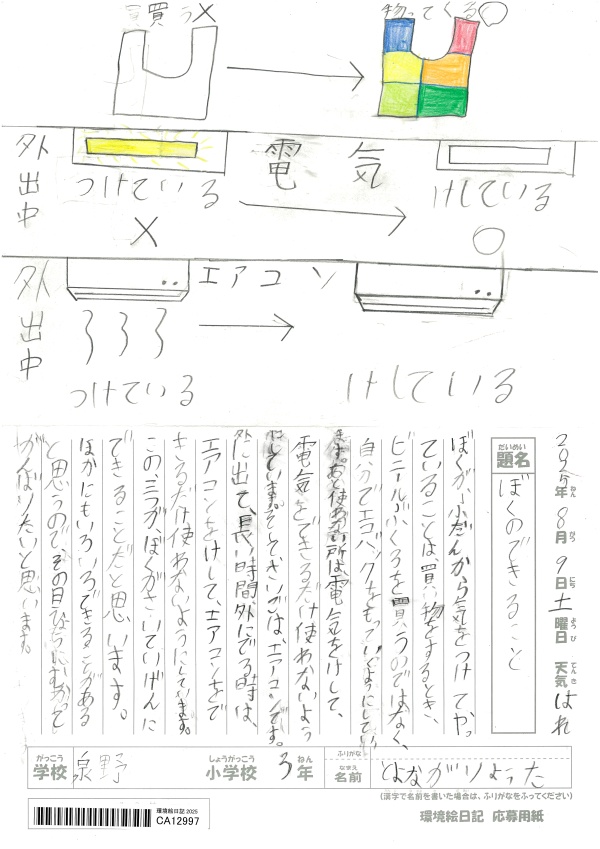 買う×
持ってくる○
外出中
つけている
×
電気
けしている
○
外出中
エアコン
つけている
けしている
2025年ねん 8月がつ 9日にち 土曜日ようび 天気てんき はれ
だいめい
題名
ぼくのできること
ぼくが、ふだんから気をつけてやっ
ていることは、買い物をするとき、
ビニールぶくろを買うのではなく、
自分でエコバックをもっていくようにしてい
ます。あと使わない所は、電気をけして、
電気をできるだけ使わないよう
にしています。そしてさいごは、エアコンです。
外に出て、長い時間、外にでる時は、
エアコンをけして、エアコンをで
きるだけ使わないようにしています。
この、三つが、ぼくがさいていげんに
できることだと思います。
ほかにもいろいろできることがある
と思うので、その目ひょうにむかって
がんばりたいと思います。
がっこう
学校
泉野
しょうがっこう
小学校
3年ねん
ふりがな
なまえ
名前
とながりょうた
(漢字で名前を書いた場合は、ふりがなをふってください)
環境絵日記 応募用紙
環境絵日記 2025
CA12997